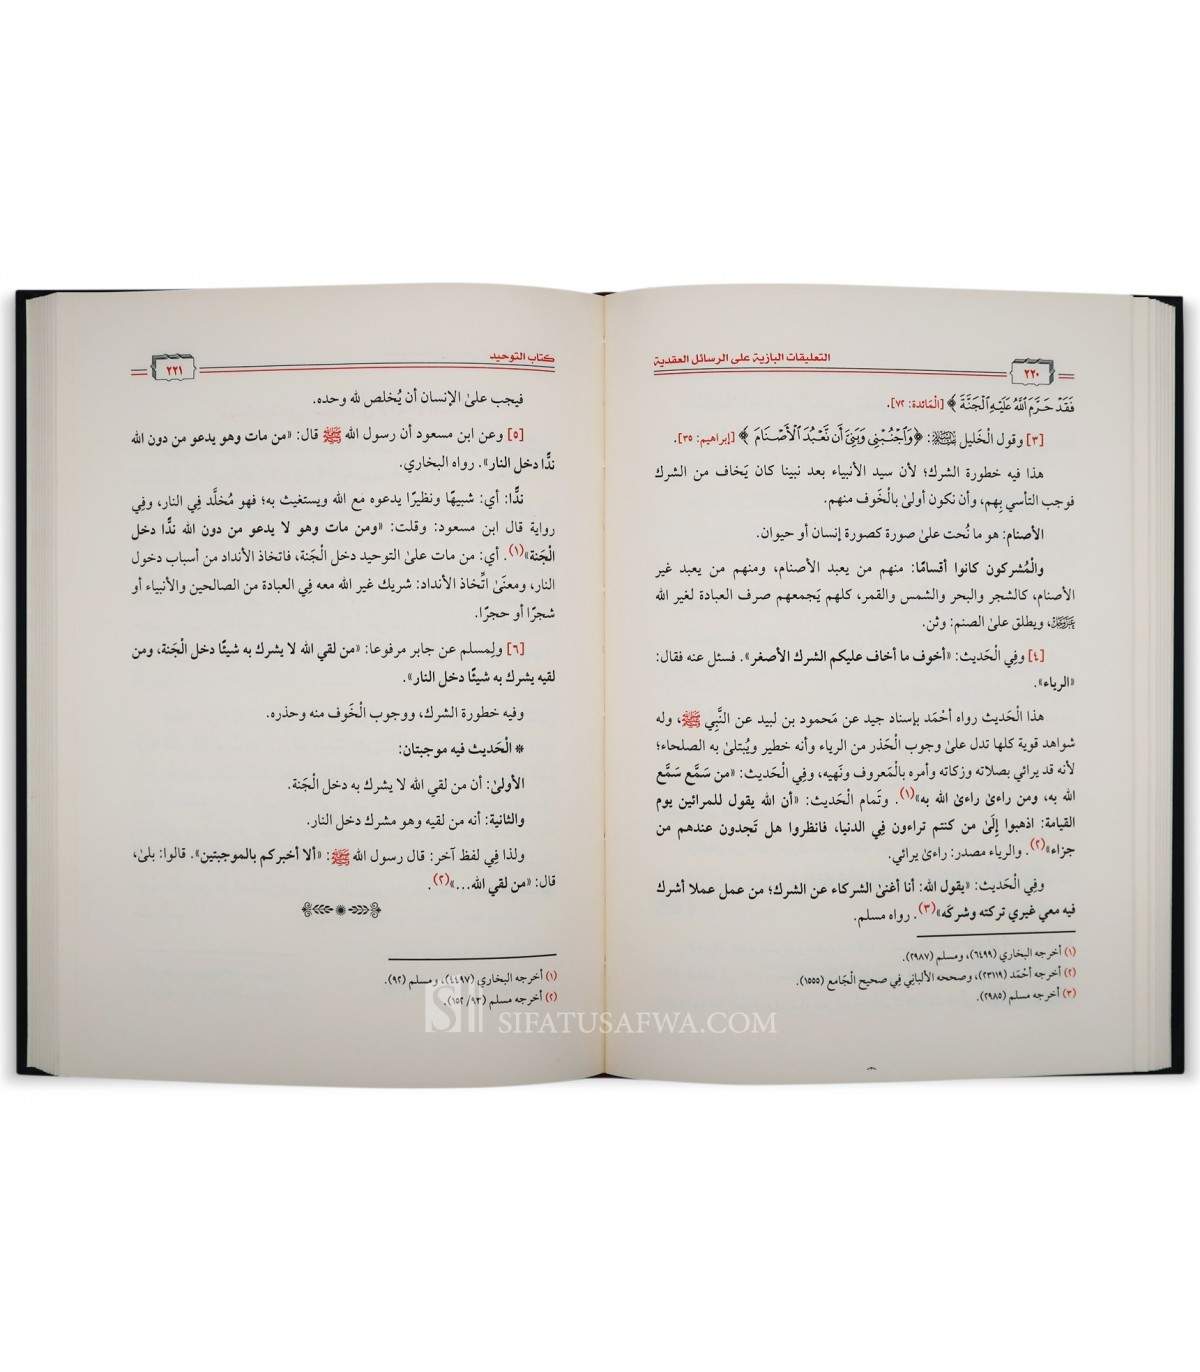 التعليقات البازية على الرسائل العقدية
٢٢٠
فَقَدْ حَرَّمَ اللَّهُ عَلَيْهِ الْجَنَّةَ ﴾ [الْمَائدة: ٧٢].
[٣] وقول الْخَليل ﷺ: ﴿وَاجْنُبْنِي وَبَنِيَّ أَن نَّعْبُدَ الْأَصْنَامَ ﴾ [إبراهيم: ٣٥].
هذا فيه خطورة الشرك؛ لأن سيد الأنبياء بعد نبينا كان يَخاف من الشرك
فوجب التأسي بِهم، وأن نكون أولىٰ بالْخَوف منهم.
الأصنام: هو ما نُحت علىٰ صورة كصورة إنسان أو حيوان.
والْمُشركون كانوا أقسامًا: منهم من يعبد الأصنام، ومنهم من يعبد غير
الأصنام، كالشجر والبحر والشمس والقمر، كلهم يَجمعهم صرف العبادة لغير الله
عَزَّوَجَلَّ، ويطلق علىٰ الصنم: وثن.
[٤] وفِي الْحَديث: «أخوف ما أخاف عليكم الشرك الأصغر». فسئل عنه فقال:
«الرياء».
هذا الْحَديث رواه أحْمَد بإسناد جيد عن مَحمود بن لبيد عن النَّبِي ﷺ، وله
شواهد قوية كلها تدل علىٰ وجوب الْحَذر من الرياء وأنه خطير ويُبتلىٰ به الصلحاء؛
لأنه قد يرائي بصلاته وزكاته وأمره بالْمَعروف ونَهيه، وفِي الْحَديث: «من سَمَّع سَمَّع
الله به، ومن راءىٰ راءىٰ الله به»(١). وتَمام الْحَديث: «أن الله يقول للمرائين يوم
القيامة: اذهبوا إِلَىٰ من كنتم تراءون فِي الدنيا، فانظروا هل تَجدون عندهم من
جزاء»(٢). والرياء مصدر: راءىٰ يرائي.
وفِي الْحَديث: «يقول الله: أنا أغنىٰ الشركاء عن الشرك؛ من عمل عملا أشرك
فيه معي غيري تركته وشركَه»(٣). رواه مسلم.
(١) أخرجه البخاري (٦٤٩٩)، ومسلم (٢٩٨٧).
(٢) أخرجه أحْمَد (٢٣١١٩)، وصححه الألبانِي فِي صحيح الْجَامع (١٥٥٥).
(٣) أخرجه مسلم (٢٩٨٥).
كتاب التوحيد
٢٢١
فيجب علىٰ الإنسان أن يُخلص لله وحده.
[٥] وعن ابن مسعود أن رسول الله ﷺ قال: «من مات وهو يدعو من دون الله
ندًّا دخل النار». رواه البخاري.
ندًّا: أي: شبيهًا ونظيرًا يدعوه مع الله ويستغيث به؛ فهو مُخلَّد فِي النار، وفِي
رواية قال ابن مسعود: وقلت: «ومن مات وهو لا يدعو من دون الله ندًّا دخل
الْجَنة»(١). أي: من مات علىٰ التوحيد دخل الْجَنة، فاتخاذ الأنداد من أسباب دخول
النار، ومعنَىٰ اتِّخاذ الأنداد: شريك غير الله معه فِي العبادة من الصالحين والأنبياء أو
شجرًا أو حجرًا.
[٦] ولِمسلم عن جابر مرفوعا: «من لقي الله لا يشرك به شيئًا دخل الْجَنة، ومن
لقيه يشرك به شيئًا دخل النار».
وفيه خطورة الشرك، ووجوب الْخَوف منه وحذره.
* الْحَديث فيه موجبتان:
الأولىٰ: أن من لقي الله لا يشرك به دخل الْجَنة.
والثانية: أنه من لقيه وهو مشرك دخل النار.
ولذا فِي لفظ آخر: قال رسول الله ﷺ: «ألا أخبركم بالموجبتين». قالوا: بلىٰ،
قال: «من لقي الله...»(٢).
(١) أخرجه البخاري (٤٤٩٧)، ومسلم (٩٢).
(٢) أخرجه مسلم (٩٣/ ١٥٢).
SIFATUSAFWA.COM